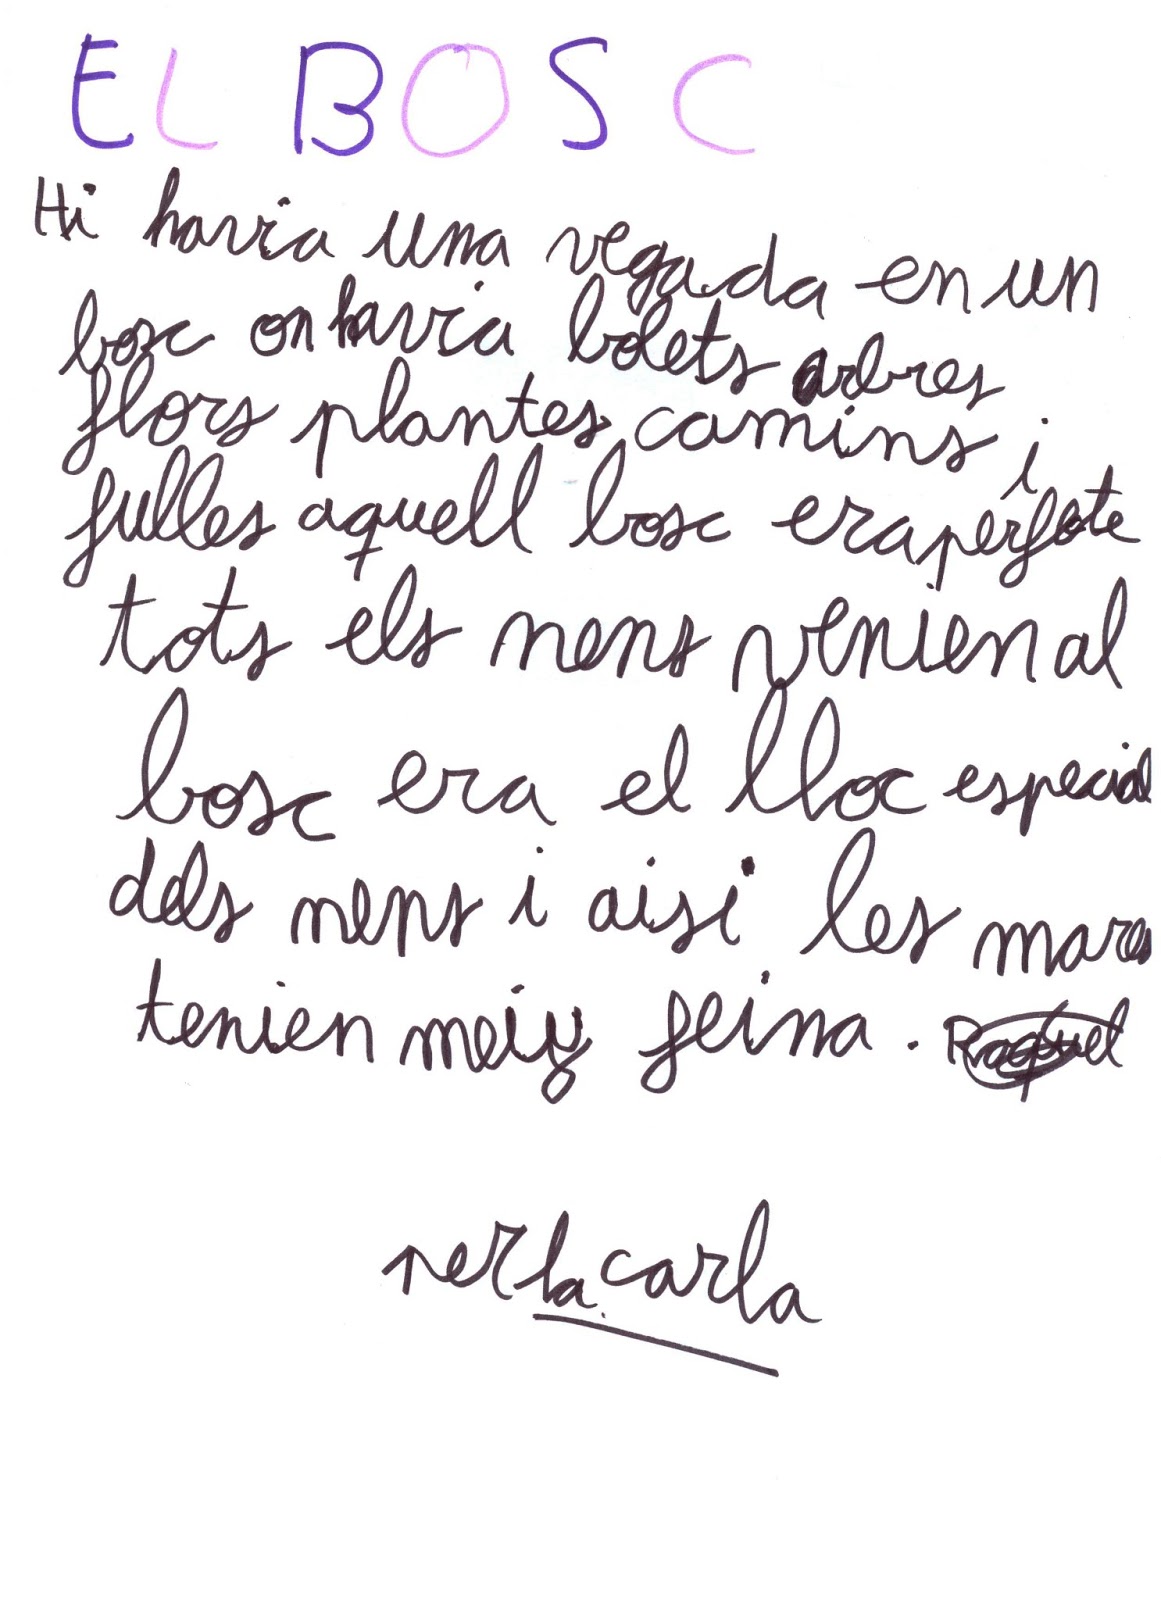 EL BOSC
Hi havia una vegada en un
bosc on havia bolets arbres
flors plantes camins i
fulles aquell bosc era perfecte
tots els nens venien al
bosc era el lloc especial
dels nens i aisi les mares
tenien meiy feina. Raquel
per la carla